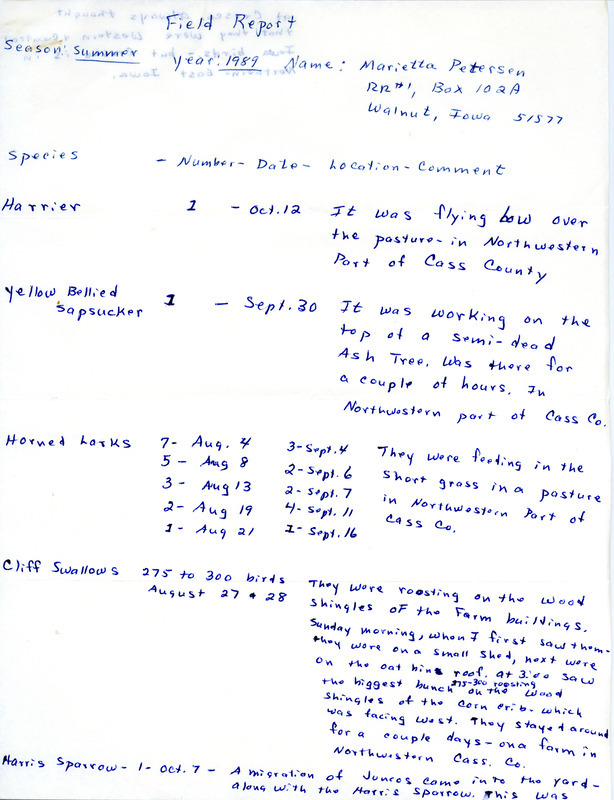 Field Report
Season: Summer Year: 1989 Name: Marietta Petersen
RR#1, Box 102A
Walnut, Iowa 51577
Species - Number - Date - Location - Comment
Harrier 1 - Oct. 12 It was flying low over
the pasture - in Northwestern
Part of Cass County
Yellow Bellied
Sapsucker 1 - Sept. 30 It was working on the
top of a semi-dead
Ash Tree. Was there for
a couple of hours. In
Northwestern part of Cass Co.
Horned Larks 7- Aug. 4 3-Sept. 4 They were feeding in the
5 - Aug 8 2-Sept. 6 short grass in a pasture
3 - Aug 13 2-Sept. 7 in Northwestern Part of
2- Aug 19 4-Sept. 11 Cass Co.
1- Aug 21 1-Sept. 16
Cliff Swallows 275 to 300 birds They were roosting on the wood
August 27 & 28 shingles of the Farm buildings.
Sunday morning, when I first saw them-
they were on a small shed, next were
on the oat bins roof. at 3:00 saw
the biggest bunch 275-300 roosting on the wood
shingles of the corn crib- which
was facing west. They stayed around
for a couple days - on a farm in
Northwestern Cass. Co.
Harris Sparrow - 1 - Oct. 7 - A migration of Juncos came into the yard-
along with the Harris Sparrow. This was